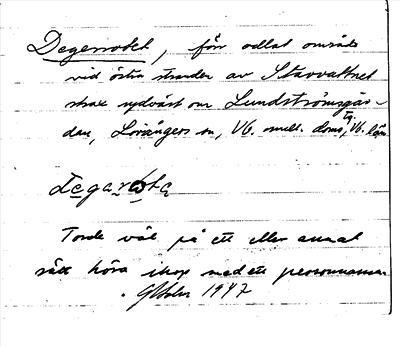 Degerrotet, förr odlat område
vid östra stranden av Stavvattnet
strax sydväst om Lundströmsgår-
den, Lövångers sn, Vb. mell. doms. tg, Vb. län
dega rota
Torde väl på ett eller annat
sätt höra ihop med ett personnamn
GHolm 1947